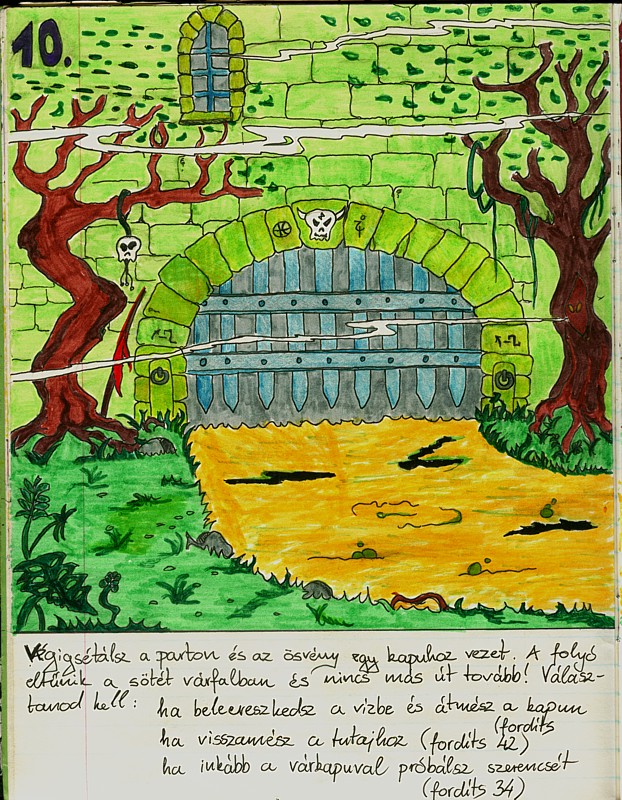 10.
Végigsétálsz a parton és az ösvény egy kapuhoz vezet. A folyó
eltűnik a sötét várfalban és nincs más út tovább! Válasz-
tanod kell: ha beleereszkedsz a vízbe és átmész a kapun
(fordíts
ha visszamész a tutajhoz (fordíts 42)
ha inkább a várkapuval próbálsz szerencsét
(fordíts 34)